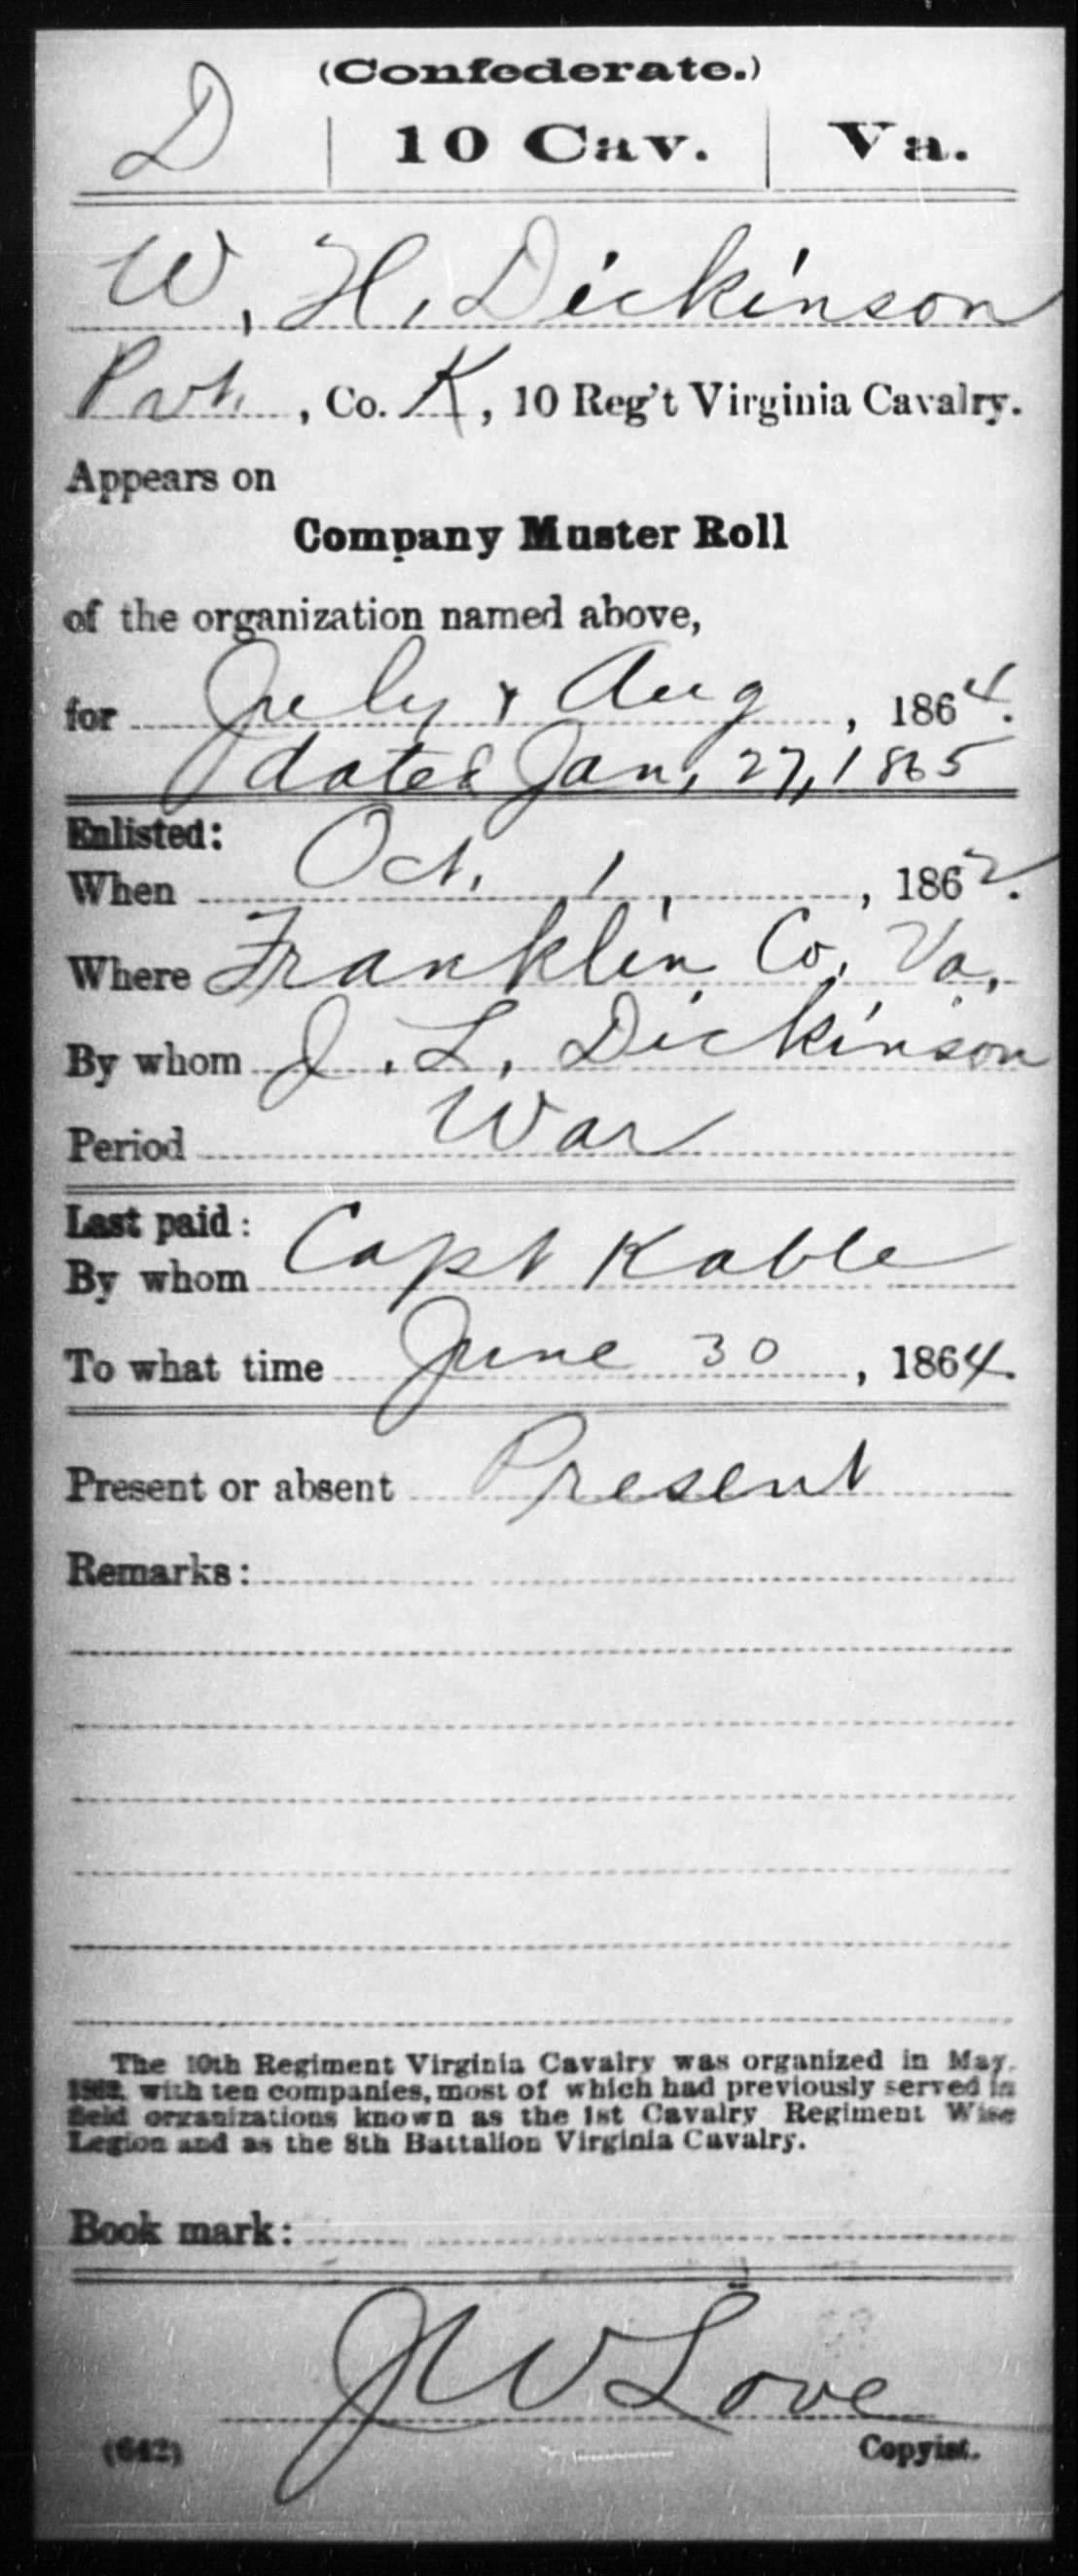 (Confederate.)
D | 10 Cav. | Va.
W. H. Dickinson
Pvt., Co. K, 10 Reg't Virginia Cavalry.
Appears on
Company Muster Roll
of the organization named above,
for July & Aug, 1864.
dated Jan. 27, 1865
Enlisted:
When Oct. 1, 1862.
Where Franklin Co. Va.
By whom J. L. Dickinson
Period War
Last paid:
By whom Capt Kable
To what time June 30, 1864.
Present or absent Present
Remarks:
The 10th Regiment Virginia Cavalry was organized in May,
1862, with ten companies, most of which had previously served in
field organizations known as the 1st Cavalry Regiment Wise
Legion and as the 8th Battalion Virginia Cavalry.
Book mark:
J W Love
(642) Copyist.